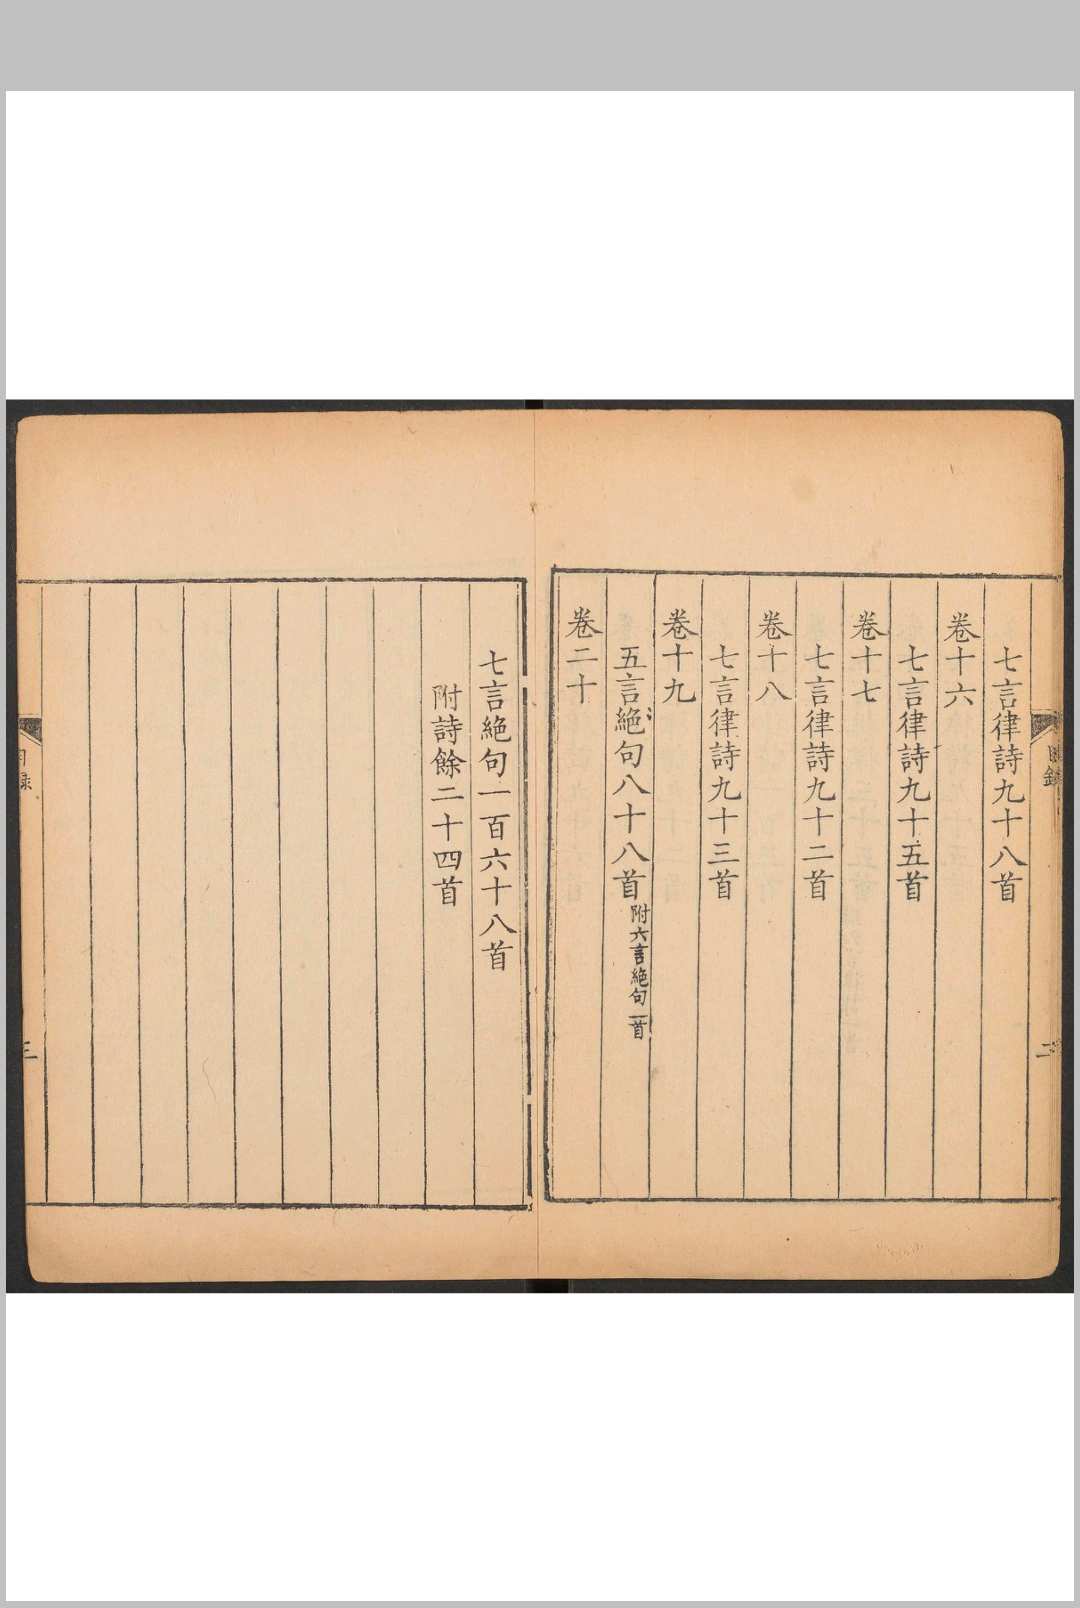 目錄
二
七言律詩九十八首
卷十六
七言律詩九十五首
卷十七
七言律詩九十二首
卷十八
七言律詩九十三首
卷十九
五言絕句八十八首附六言絕句一首
卷二十
七言絕句一百六十八首
附詩餘二十四首
目錄
三